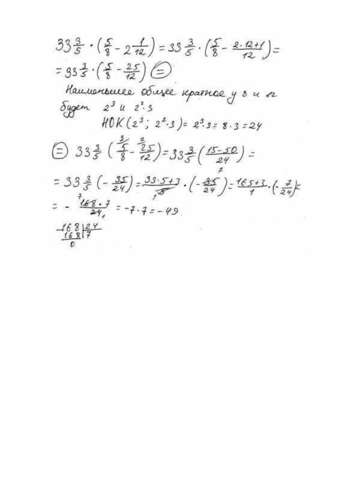 33 3/5 · (5/8 - 2 1/12) = 33 3/5 · (5/8 - 2·12+1/12) =
= 33 3/5 · (5/8 - 25/12) =
Наименьшее общее кратное у 8 и 12
будет 2³ и 2²·3
НОК (2³; 2²·3) = 2³·3 = 8·3 = 24
= 33 3/5 (5/8 - 25/12) = 33 3/5 (15-50/24) =
= 33 3/5 (- 35/24) = 33·5+3/5 · (- 35/24) = 165+3/1 · (- 7/24) =
= - 168·7/24 = -7·7 = -49
168 24
168 7
0